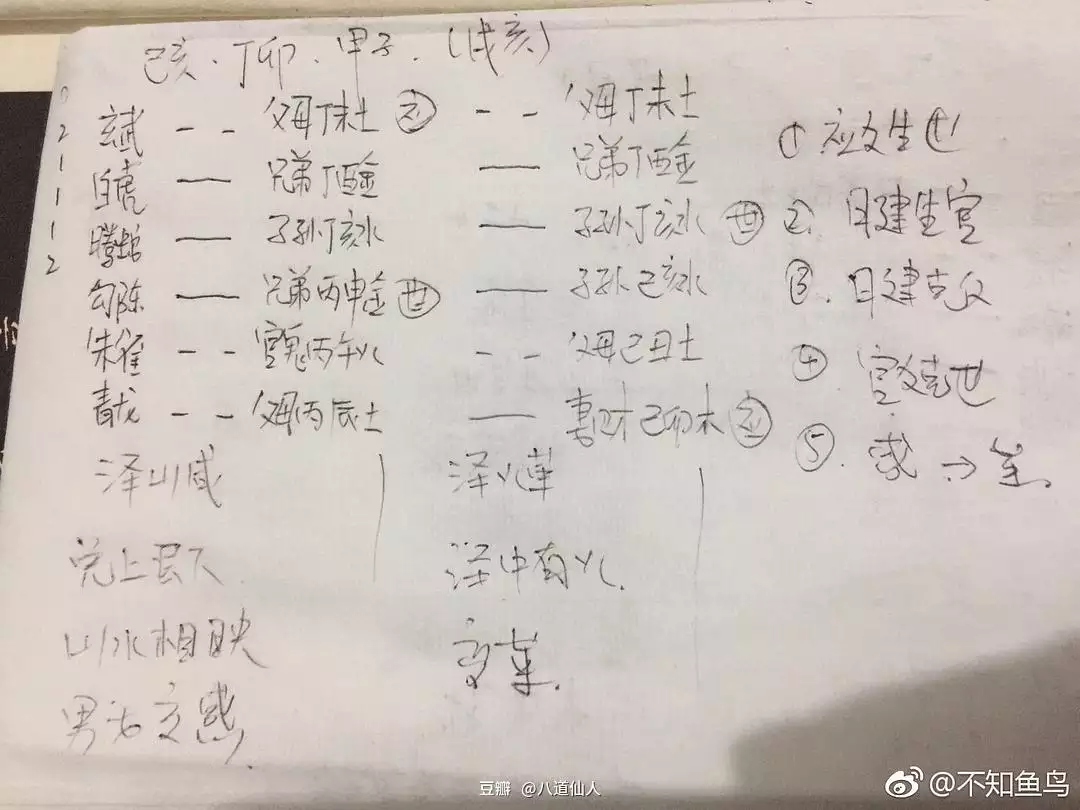 己亥.丁卯.甲子.(戌亥)
2 玄武 -- 父母丁未土 应 -- 父母丁未土
1 白虎 — 兄弟丁酉金 — 兄弟丁酉金
1 螣蛇 — 子孙丁亥水 — 子孙丁亥水 世
1 勾陈 — 兄弟丙申金 世 — 子孙己亥水
2 朱雀 -- 官鬼丙午火 -- 父母己丑土
青龙 -- 父母丙辰土 — 妻财己卯木 应
① 应爻生世
②. 日建生官
③. 日建克父
④ 官爻克世
⑤. →
泽山咸
兑上艮下
山水相映
男女交感.
泽火革
泽中有火.
变革.
豆瓣 @八道仙人
@不知鱼鸟